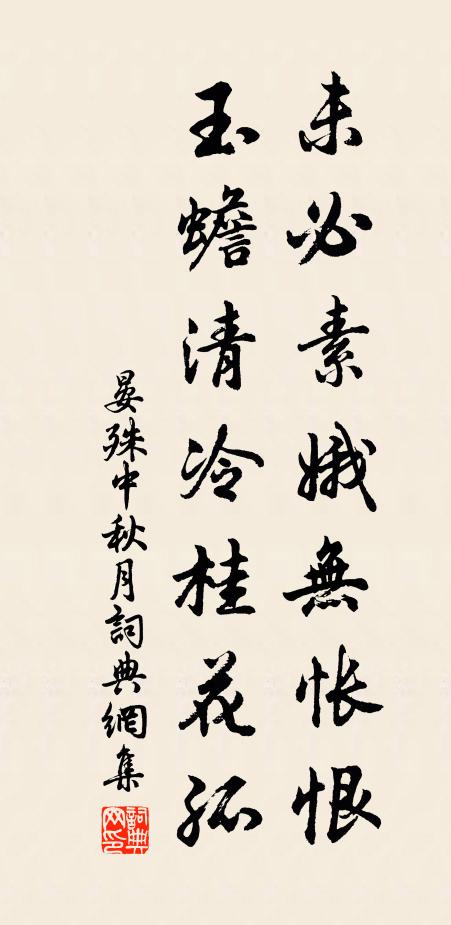 未必素娥無悵恨
玉蟾清冷桂花孤
晏殊中秋月詞典網集
詞典網印